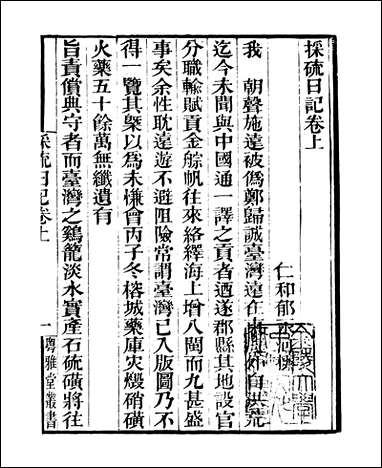 採硫日記卷上
仁和郁
我 朝聲施遠被僞鄭歸誠臺灣遠在 自洪荒
迄今未聞與中國通一譯之貢者迺遂郡縣其地設官
分職輸賦貢金綜帆往來絡繹海上增八閩而九甚盛
事矣余性耽遠遊不避阻險常謂臺灣已入版圖乃不
得一覽其槩以爲未慊會丙子冬榕城藥庫灾燬硝磺
火藥五十餘萬無纖遺有
旨責償典守者而臺灣之鷄籠淡水實產石硫磺將往
採硫日記卷上 一 粵雅堂叢書